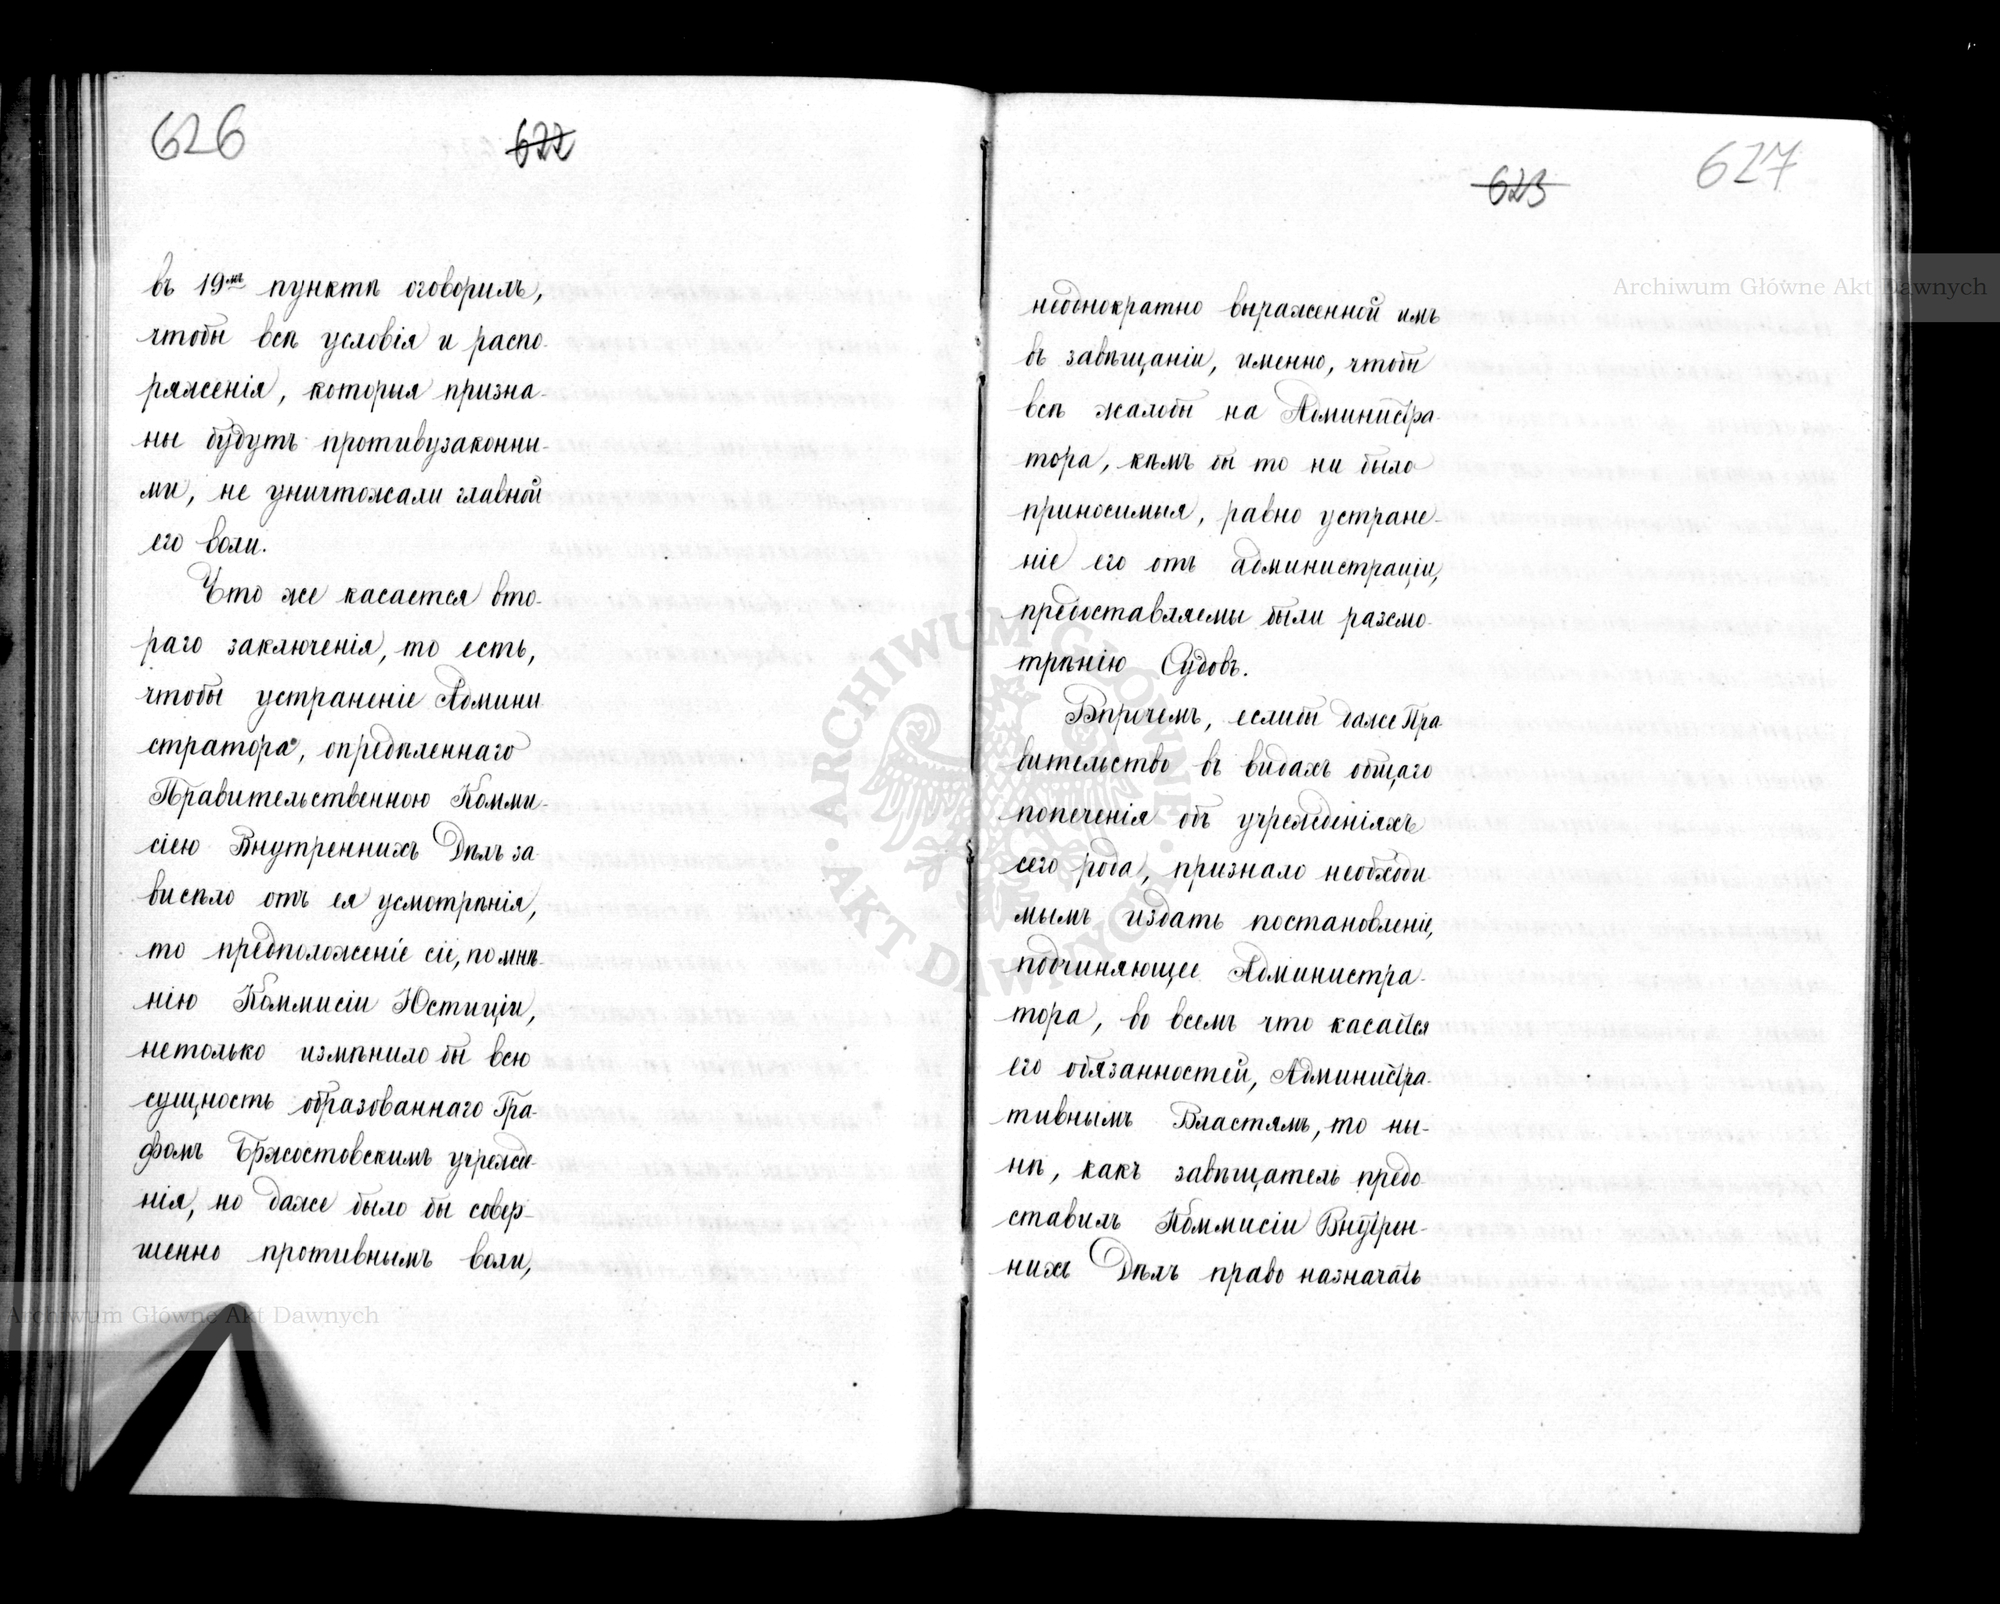 626
622
въ 19мъ пунктѣ оговорилъ,
чтобы всѣ условія и распо-
ряженія, которыя призна-
ны будутъ противузаконны-
ми, не уничтожали главной
его воли.
Что же касается вто-
раго заключенія, то есть,
чтобы устраненіе Админи
стратора, опредѣленнаго
Правительственною Комми-
сіею Внутреннихъ Дѣлъ за
висѣло отъ ея усмотрѣнія,
то предположеніе сіе, по мнѣ-
нію Коммисіи Юстиціи,
нетолько измѣнило бы всю
сущность образованнаго Гра-
фомъ Бржостовскимъ учрежде-
нія, но даже было бы совер-
шенно противнымъ воли,
623
627
неоднократно выраженной имъ
въ завѣщаніи, именно, чтобы
всѣ жалобы на Администра-
тора, кѣмъ бы то ни было
приносимыя, равно устране-
ніе его отъ администраціи,
предоставляемы были разсмо-
трѣнію Судовъ.
Впрочемъ, еслибы даже Пра
вительство въ видахъ общаго
попеченія объ учрежденіяхъ
сего рода, признало необходи
мымъ издать постановленіе,
подчиняющее Администра-
тора, во всемъ что касается
его обязанностей, Администра-
тивнымъ Властямъ, то ны-
нѣ, какъ завѣщатель предо-
ставилъ Коммисіи Внутрен-
нихъ Дѣлъ право назначать
Archiwum Główne Akt Dawnych
Archiwum Główne Akt Dawnych
ARCHIWUM GŁÓWNE · AKT DAWNYCH ·